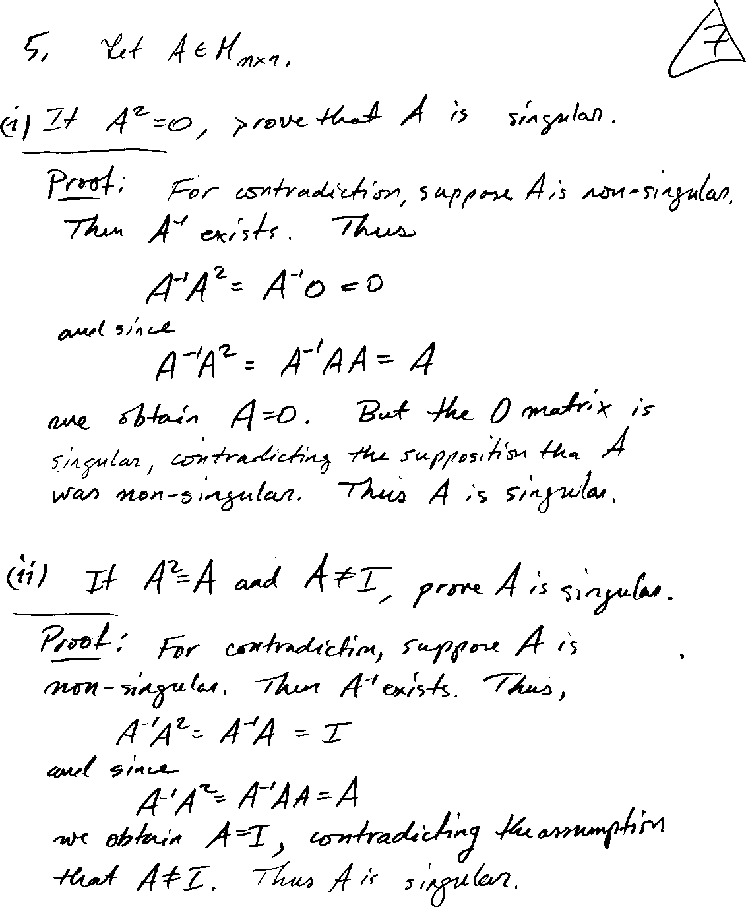 5. Let A ∈ M n×n.
7
(i) If A²=0, prove that A is singular.
Proof: For contradiction, suppose A is non-singular.
Then A⁻¹ exists. Thus
A⁻¹A² = A⁻¹0 = 0
and since
A⁻¹A² = A⁻¹AA = A
we obtain A=0. But the 0 matrix is
singular, contradicting the supposition tha A
was non-singular. Thus A is singular.
(ii) If A²=A and A≠I, prove A is singular.
Proof: For contradiction, suppose A is
non-singular. Then A⁻¹ exists. Thus,
A⁻¹A² = A⁻¹A = I
and since
A⁻¹A² = A⁻¹AA = A
we obtain A=I, contradicting the assumption
that A≠I. Thus A is singular.